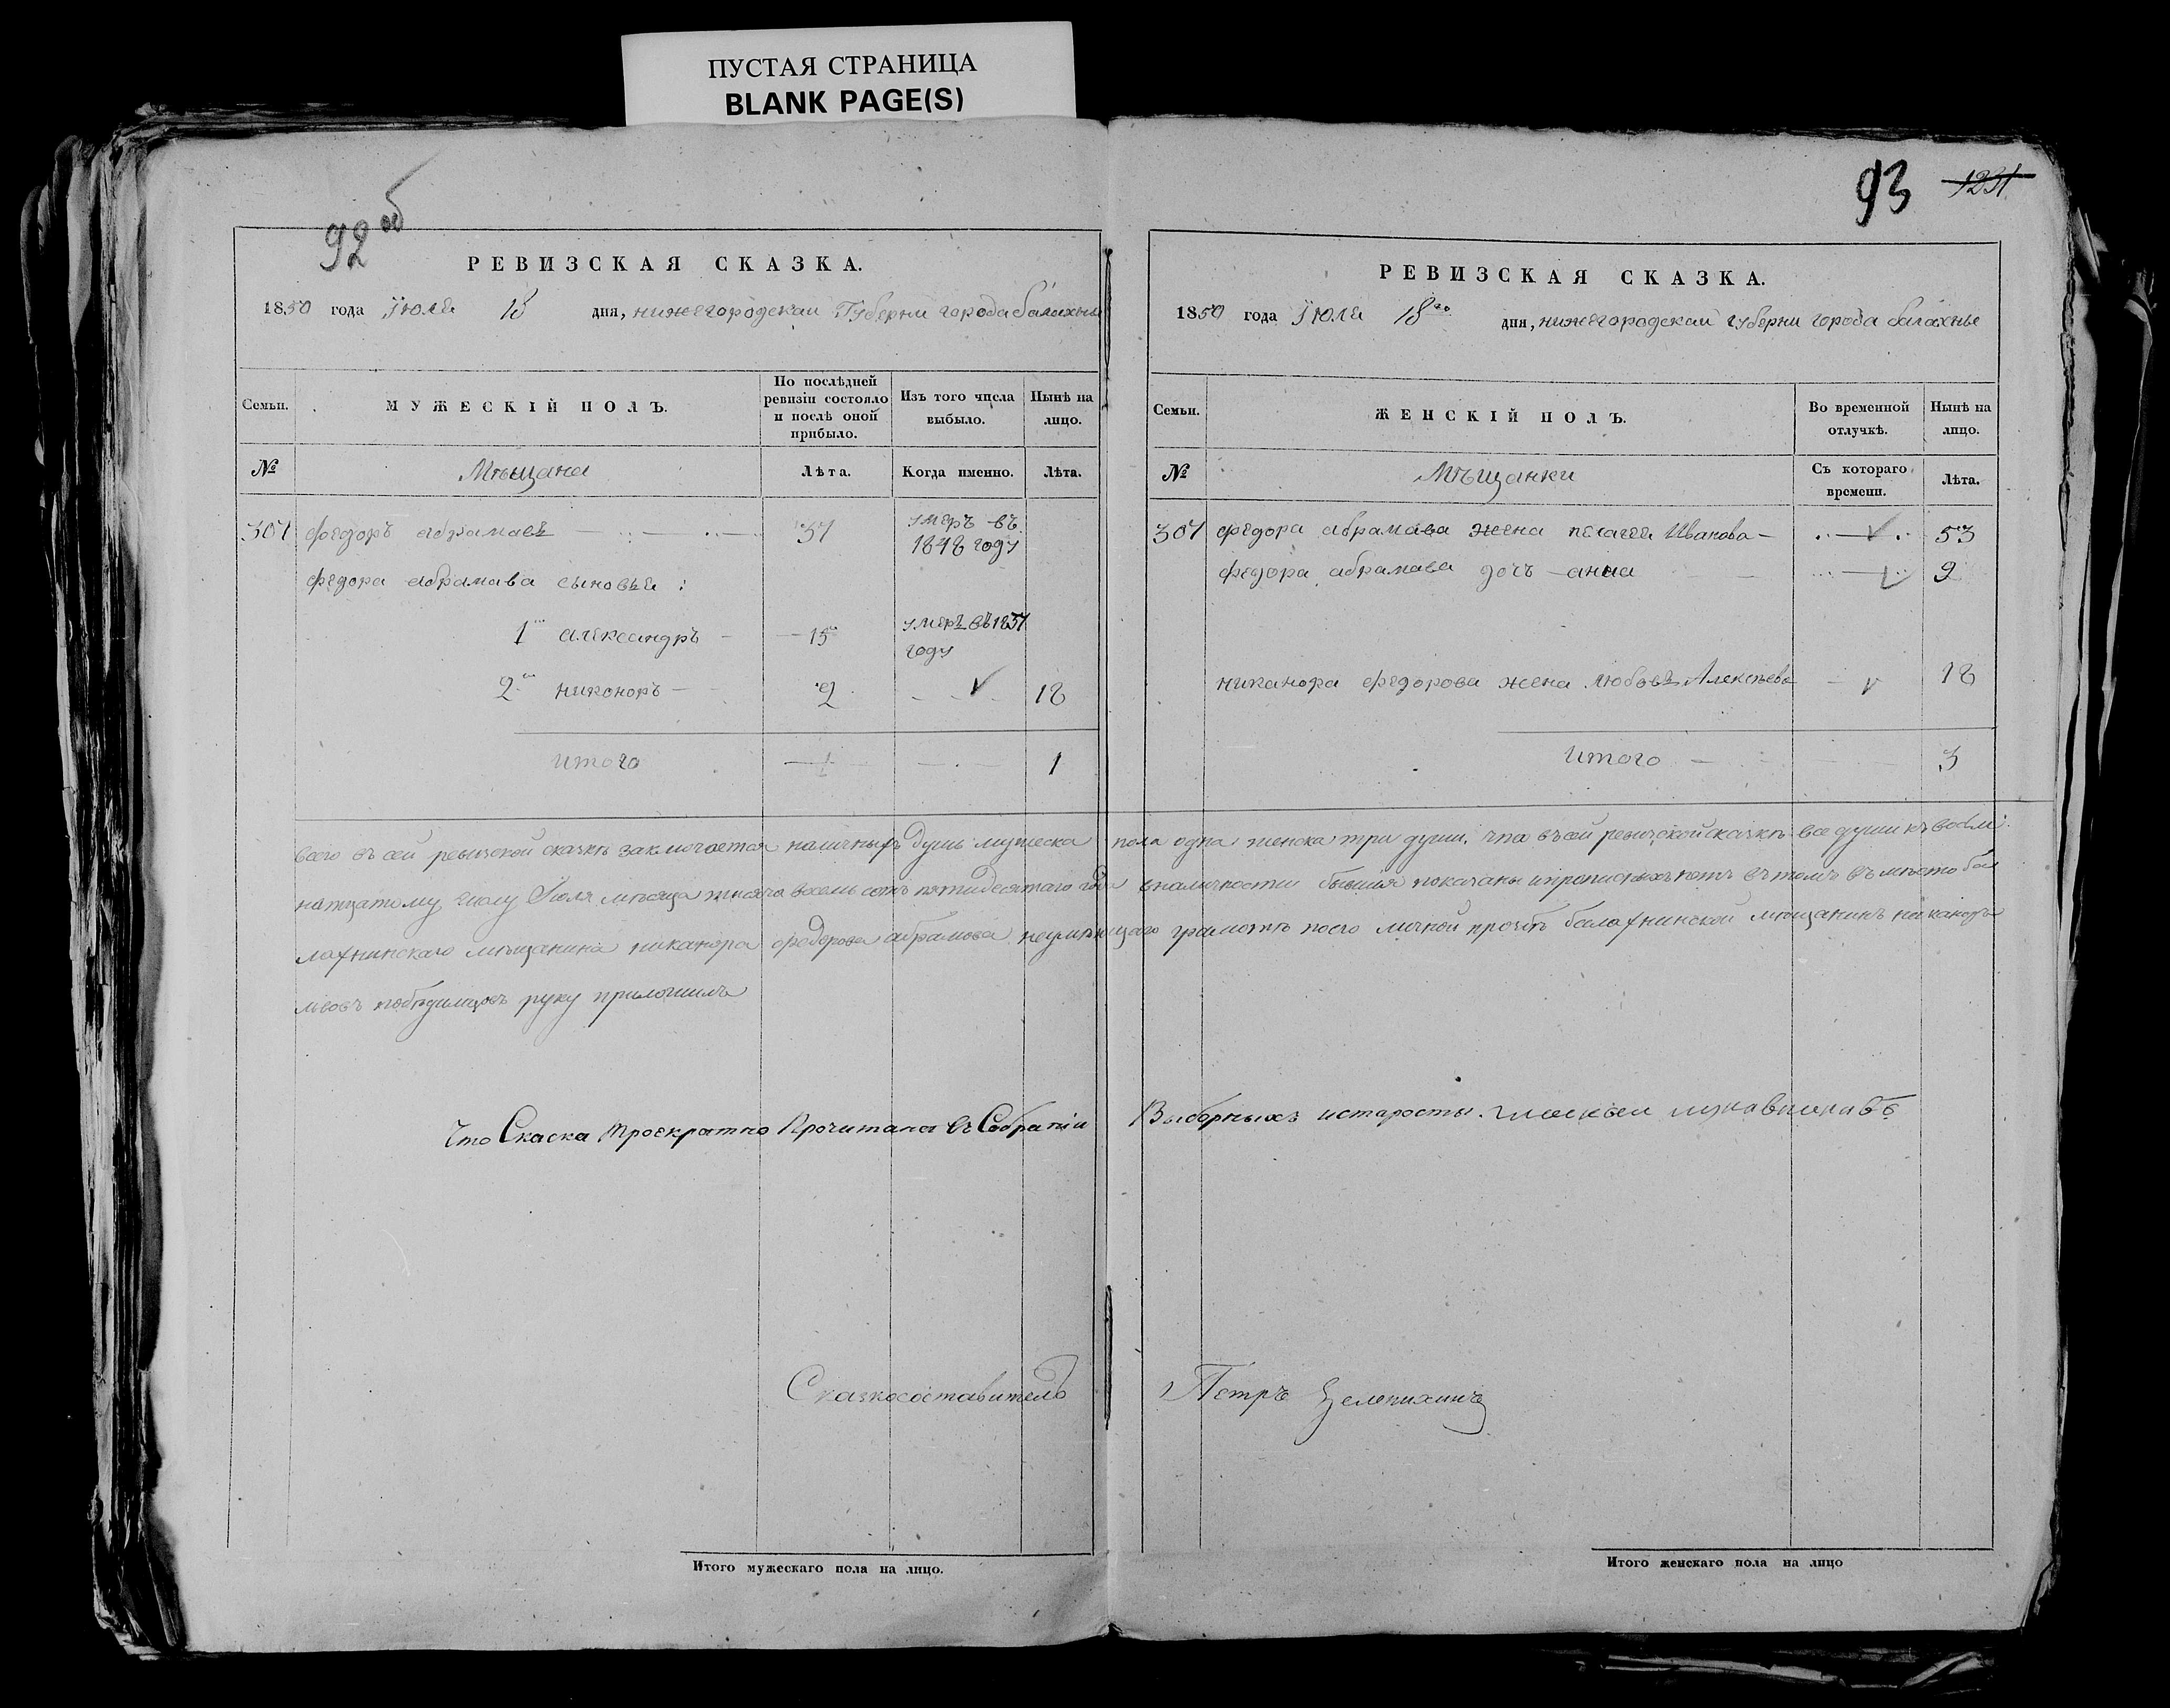 ПУСТАЯ СТРАНИЦА
BLANK PAGE(S)
92 об
РЕВИЗСКАЯ СКАЗКА.
1850 года Июля 18 дня, нижегородскаи Губерни города балахны
Семьи. МУЖЕСКІЙ ПОЛЪ. По послѣдней ревизіи состояло и послѣ оной прибыло. Изъ того числа выбыло. Нынѣ на лицо.
№ Мѣщана Лѣта. Когда именно. Лѣта.
307 федоръ абрамавъ 37 умеръ въ 1848 году
федора абрамава сыновья:
1 александръ 15 умеръ въ 1837 году
2 никоноръ 2 18
итого 1
93 1231
РЕВИЗСКАЯ СКАЗКА.
1850 года Июля 18го дня, нижегородскаи губерни города балахнье
Семьи. ЖЕНСКІЙ ПОЛЪ. Во временной отлучкѣ. Нынѣ на лицо.
№ Мѣщанки Съ котораго времени. Лѣта.
307 федора абрамава жена пелагея Иванова 53
федора абрамава дочь анна 9
никанора федорова жена любовь Алексѣева 18
Итого 3
всего въ сей ревизской сказкѣ заключается наличныхъ душъ мужеска пола одна женска три души, что въ сей ревизской сказкѣ все души къ восем
натцатому числу Июля мѣсяца тысяча восемь сотъ пятидесятаго года в наличности бывшия показаны и прописныхъ нетъ въ томъ въ мѣсто ба
лахнинскаго мѣщанина никанора федорова абрамова неумѣющаго грамотѣ по его личной прозбѣ балахнинской мѣщанинъ никаноръ
львовъ руку приложилъ
Что Скаска троекратно Прочитана въ Собраніи Выборныхъ и старосты.
Сказкосоставитель Петръ Зелепихинъ
Итого мужескаго пола на лицо.
Итого женскаго пола на лицо